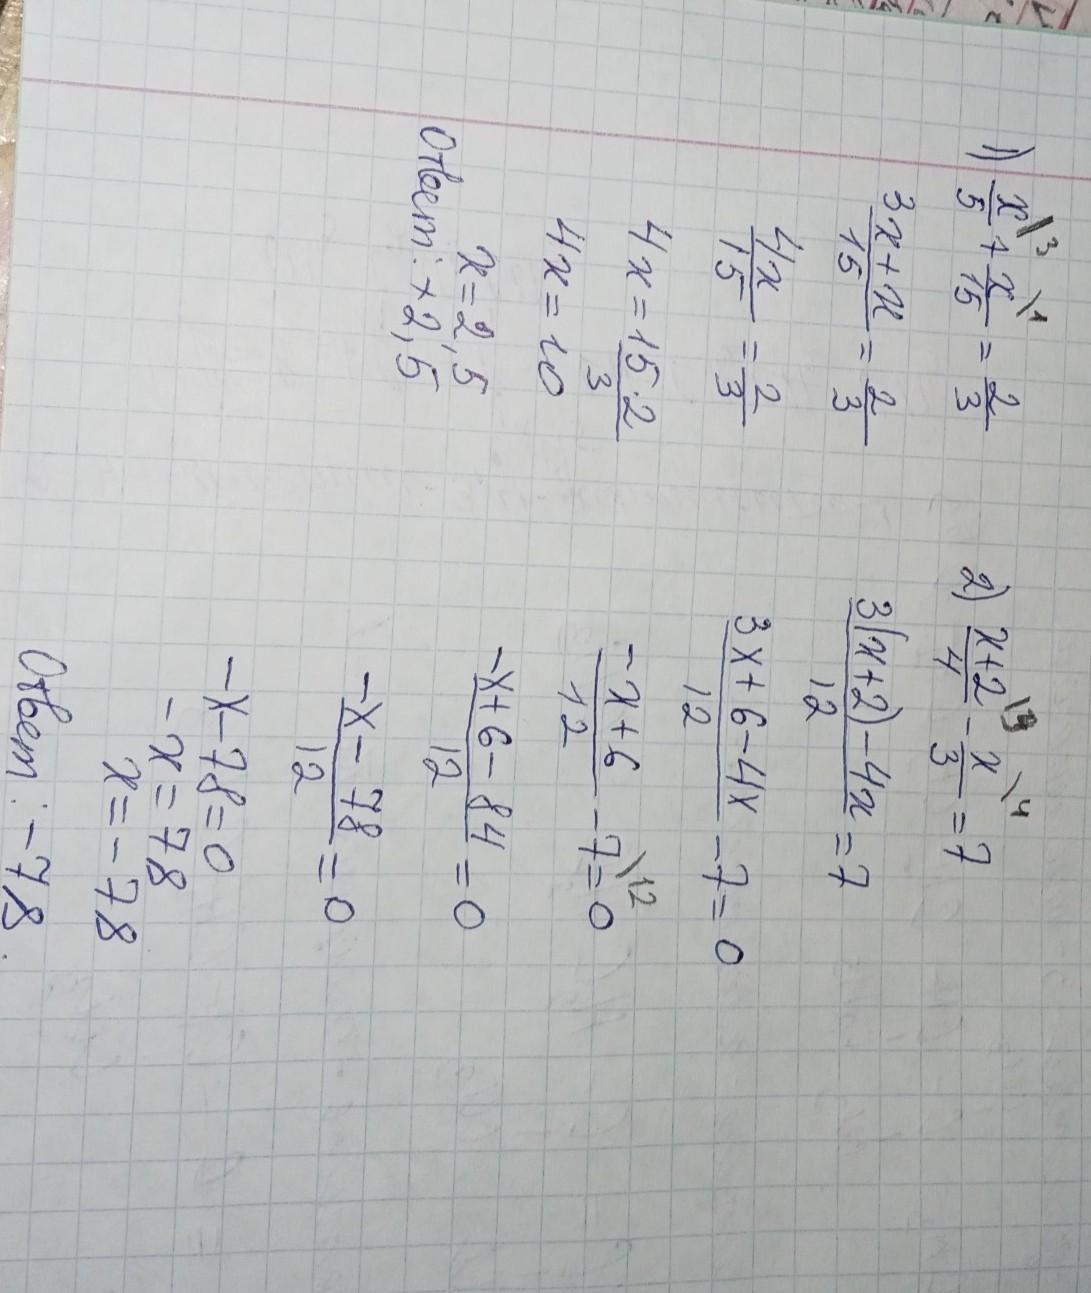 1) x/5\3 + x/15\1 = 2/3
3x+x/15 = 2/3
4x/15 = 2/3
4x = 15·2/3
4x = 10
x = 2,5
Ответ: +2,5
2) x+2/4\3 - x/3\4 = 7
3(x+2)-4x/12 = 7
3x+6-4x/12 - 7 = 0
-x+6/12 - 7\12 = 0
-x+6-84/12 = 0
-x-78/12 = 0
-x-78=0
-x=78
x=-78
Ответ: -78.